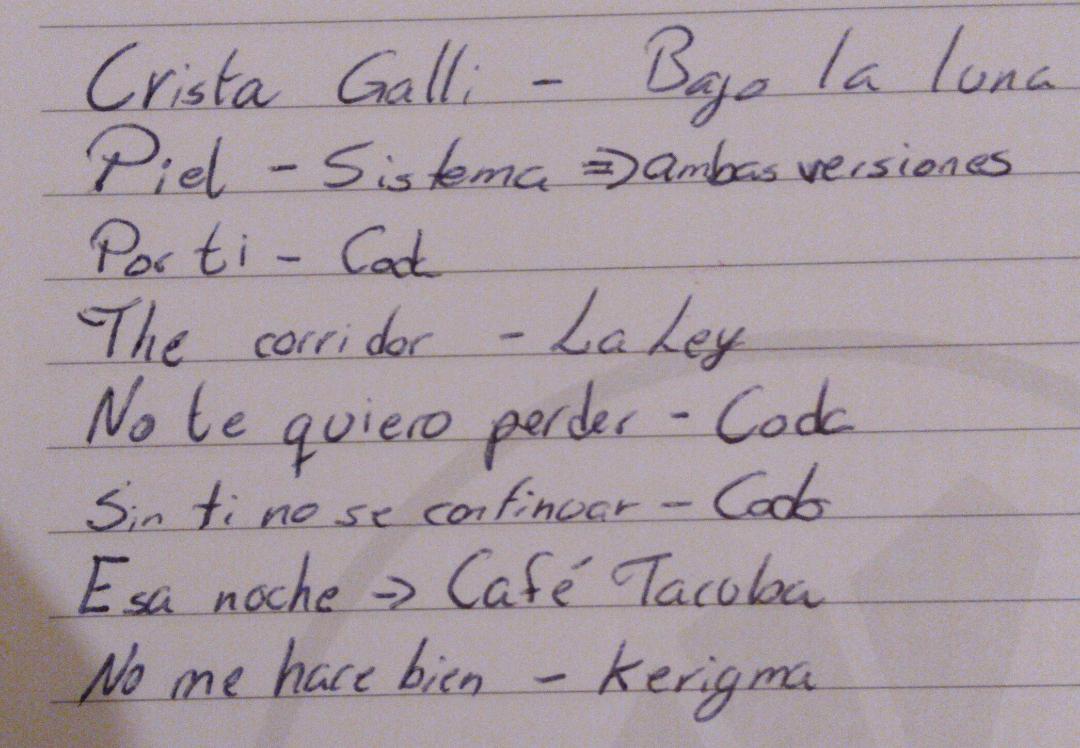 Crista Galli - Bajo la luna
Piel - Sistema => ambas versiones
Por ti - Coda
The corridor - La Ley
No te quiero perder - Coda
Sin ti no se continuar - Coda
Esa noche -> Café Tacuba
No me hace bien - Kerigma